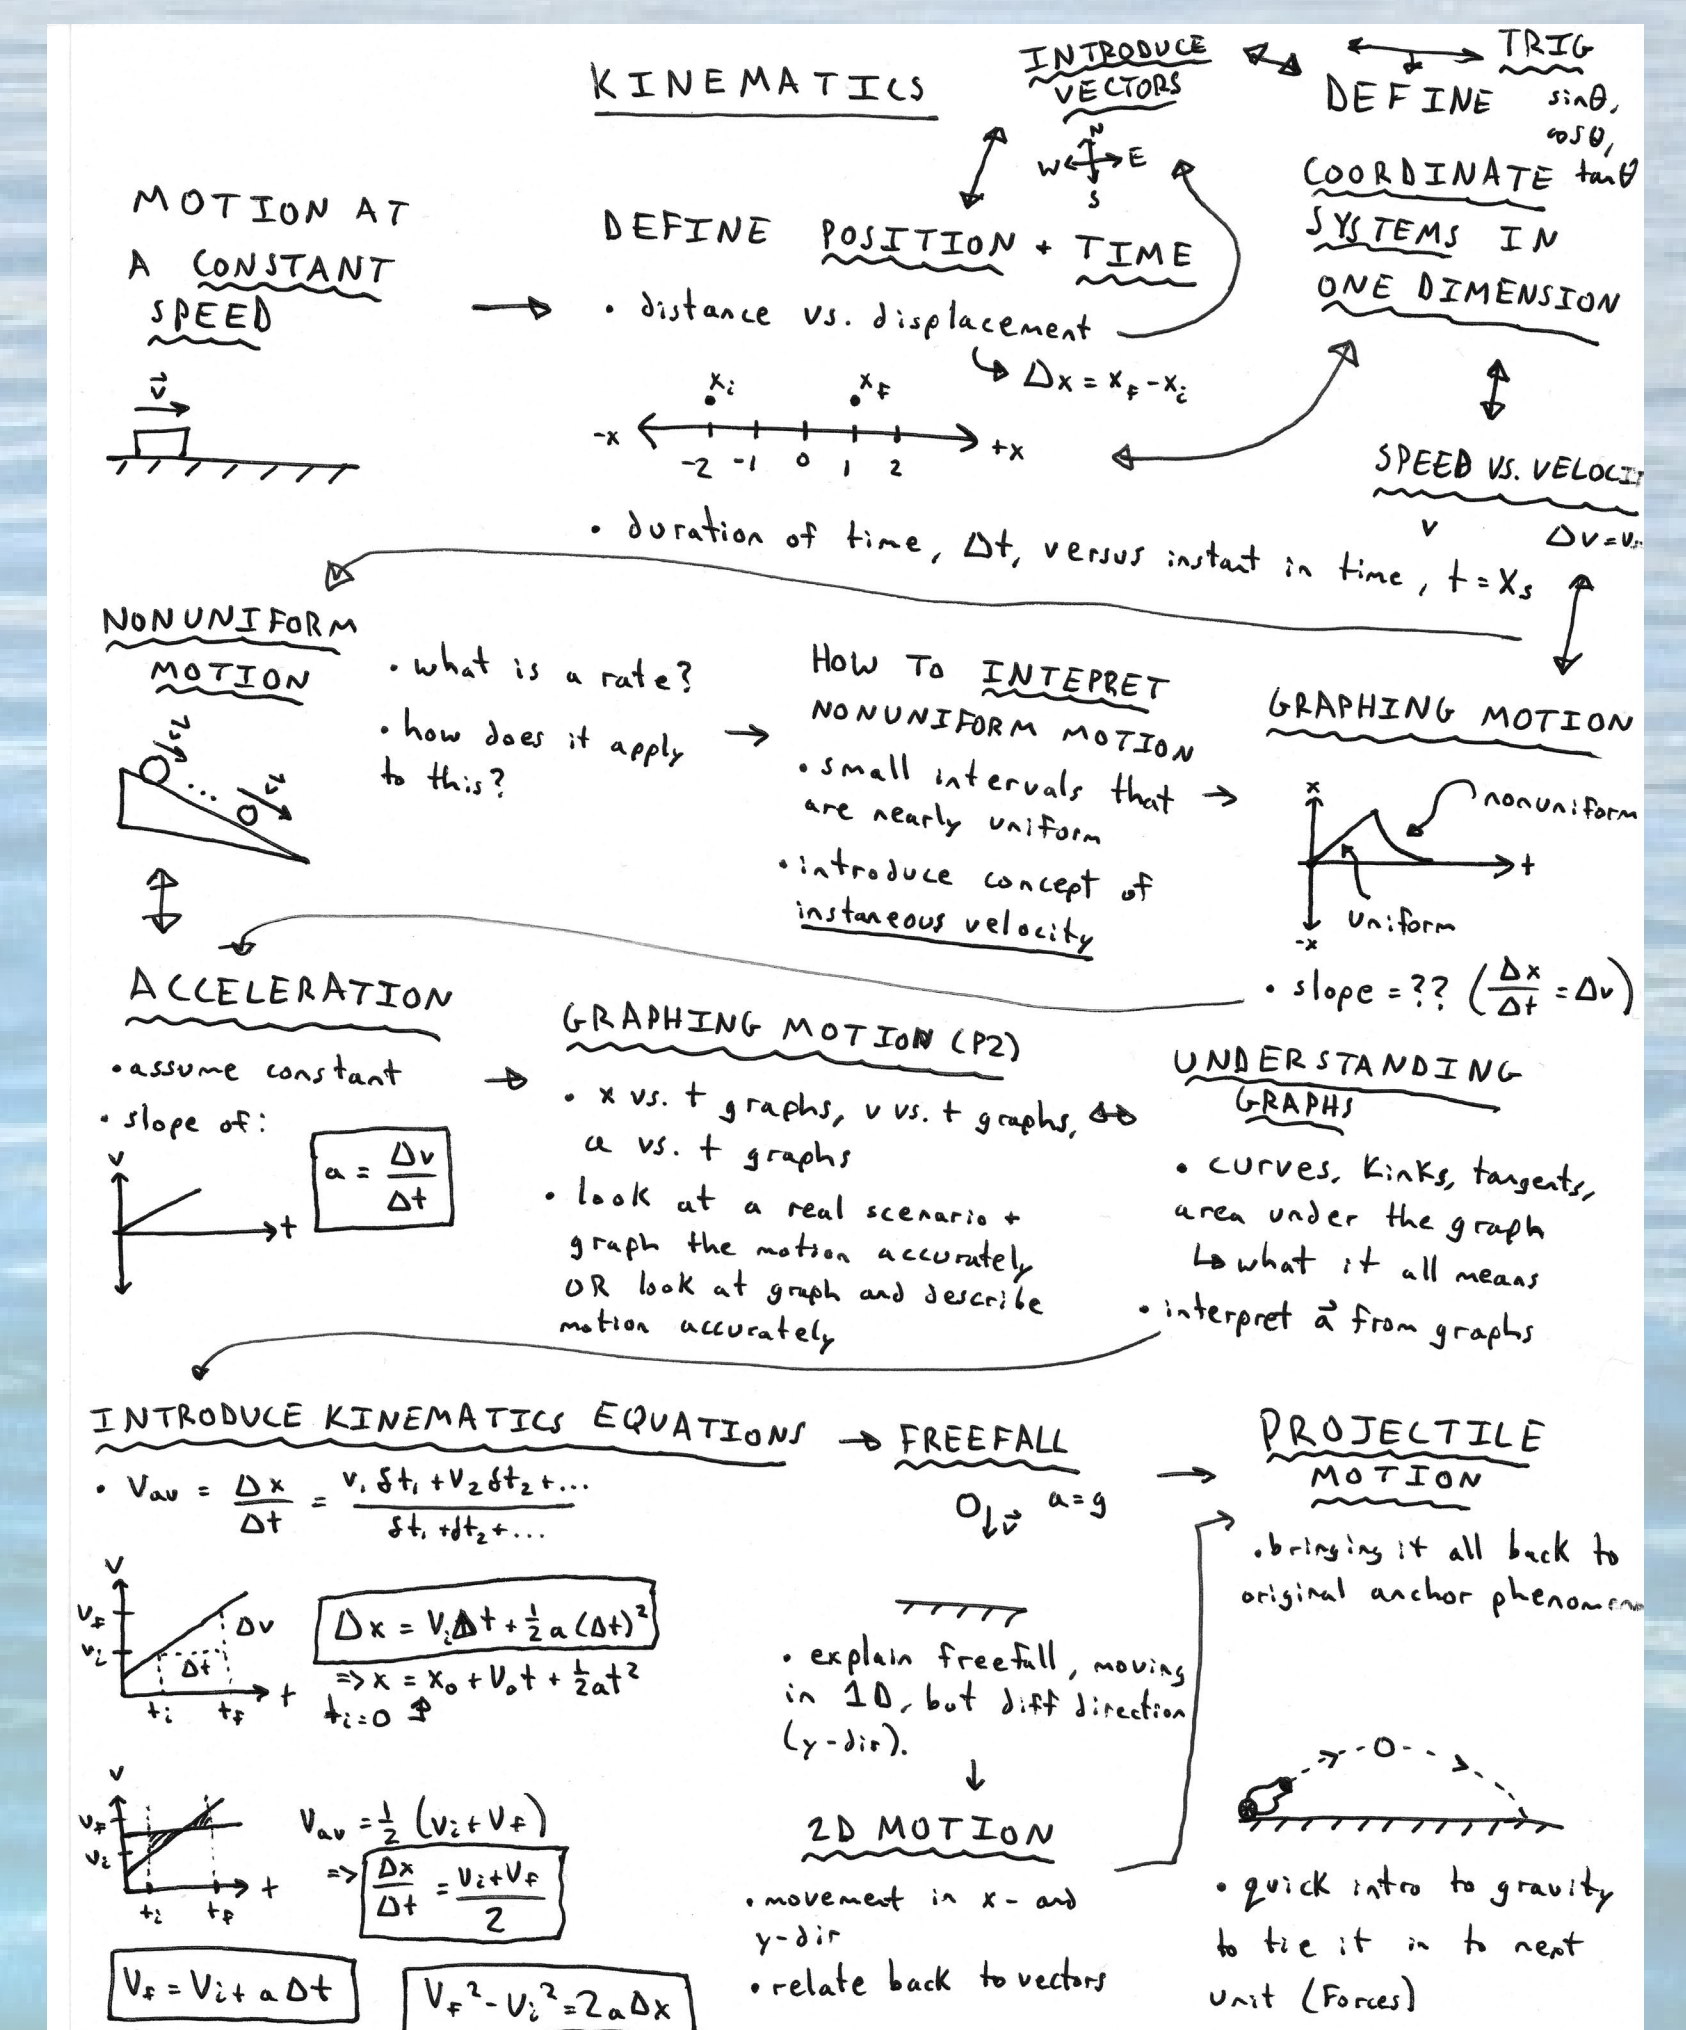 KINEMATICS
INTRODUCE
VECTORS
N
W E
S
TRIG
sinθ,
cosθ,
tanθ
DEFINE
COORDINATE
SYSTEMS IN
ONE DIMENSION
MOTION AT
A CONSTANT
SPEED
v⃗
DEFINE POSITION + TIME
• distance vs. displacement
↳ Δx = x_f - x_i
x_i x_f
-x +x
-2 -1 0 1 2
• duration of time, Δt, versus instant in time, t = X_s
SPEED VS. VELOCI
v Δv = v
NONUNIFORM
MOTION
v⃗
...
v⃗
• what is a rate?
• how does it apply
to this?
HOW TO INTEPRET
NONUNIFORM MOTION
• small intervals that
are nearly uniform
• introduce concept of
instaneous velocity
GRAPHING MOTION
x
nonuniform
t
uniform
-x
• slope = ?? (Δx/Δt = Δv)
ACCELERATION
• assume constant
• slope of:
v
t
a = Δv/Δt
GRAPHING MOTION (P2)
• x vs. t graphs, v vs. t graphs,
a vs. t graphs
• look at a real scenario +
graph the motion accurately
OR look at graph and describe
motion accurately
UNDERSTANDING
GRAPHS
• curves, kinks, tangents,
area under the graph
↳ what it all means
• interpret a⃗ from graphs
INTRODUCE KINEMATICS EQUATIONS
• V_av = Δx/Δt = (v₁δt₁ + v₂δt₂ + ...)/(δt₁ + δt₂ + ...)
v
v_f
v_i
Δv
Δt
t_i t_f
t
Δx = V_iΔt + ½a(Δt)²
=> x = x₀ + V₀t + ½at²
t_i = 0
v
v_f
v_i
t_i t_f
t
V_av = ½(v_i + v_f)
=> Δx/Δt = (v_i + v_f)/2
V_f = V_i + aΔt
V_f² - V_i² = 2aΔx
FREEFALL
v⃗ a = g
• explain freefall, moving
in 1D, but diff direction
(y-dir).
2D MOTION
• movement in x- and
y-dir
• relate back to vectors
PROJECTILE
MOTION
• bringing it all back to
original anchor phenomenon
• quick intro to gravity
to tie it in to next
unit (Forces)